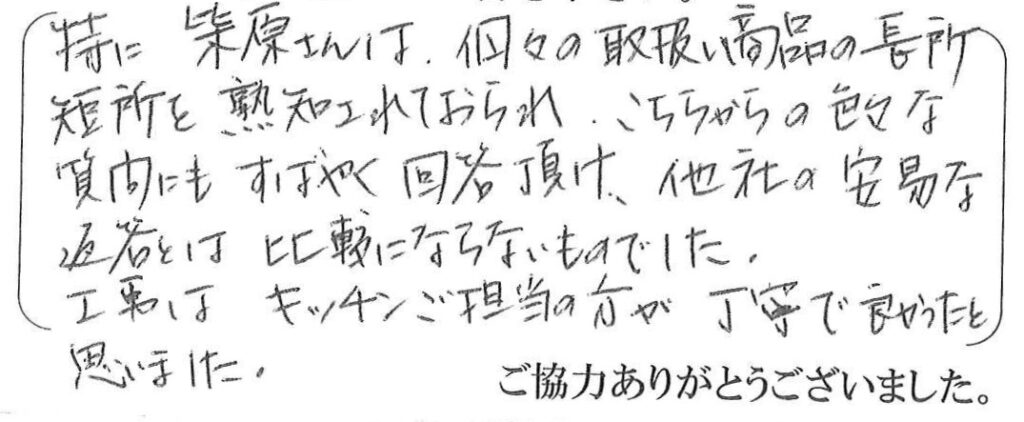 特に 柴原さんは、個々の取扱い商品の長所
短所を熟知されておられ、こちらからの色々な
質問にも すばやく 回答頂け、他社の安易な
返答とは 比較にならないものでした。
工事は キッチンご担当の方が 丁寧で良かったと
思いました。
ご協力ありがとうございました。